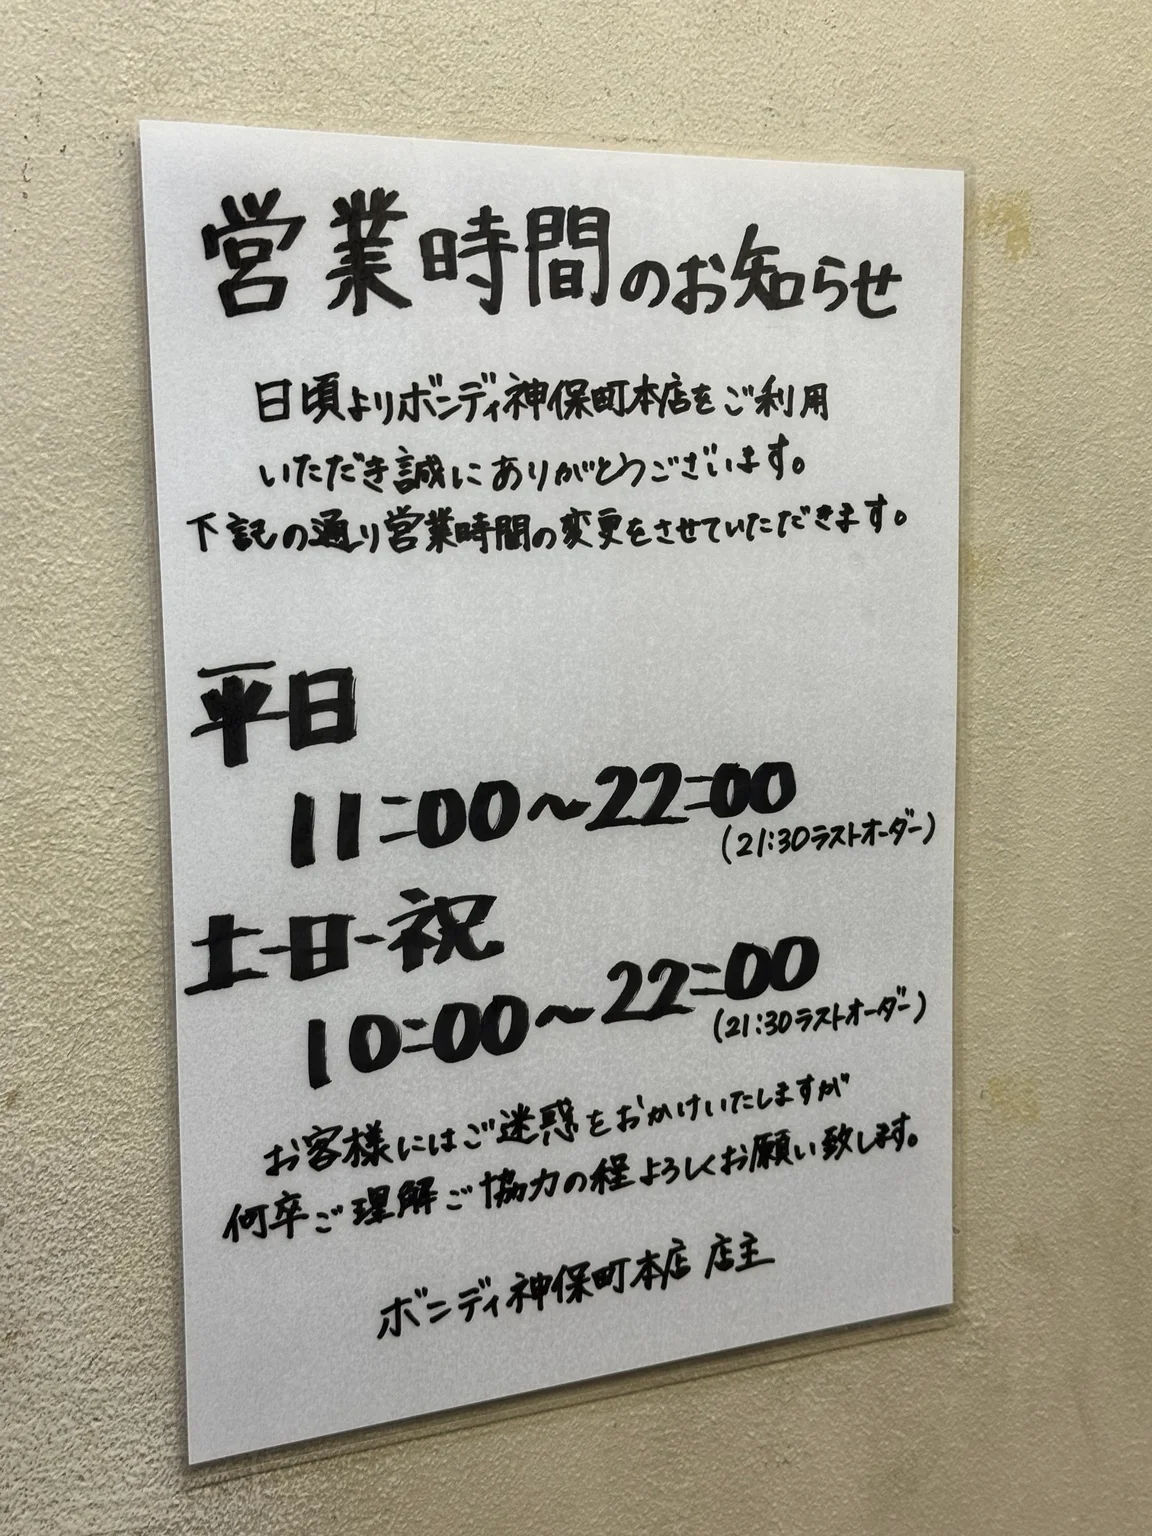 営業時間のお知らせ
日頃よりボンディ神保町本店をご利用
いただき誠にありがとうございます。
下記の通り営業時間の変更をさせていただきます。
平日
11:00～22:00
(21:30ラストオーダー)
土・日・祝
10:00～22:00
(21:30ラストオーダー)
お客様にはご迷惑をおかけいたしますが
何卒ご理解ご協力の程よろしくお願い致します。
ボンディ神保町本店 店主